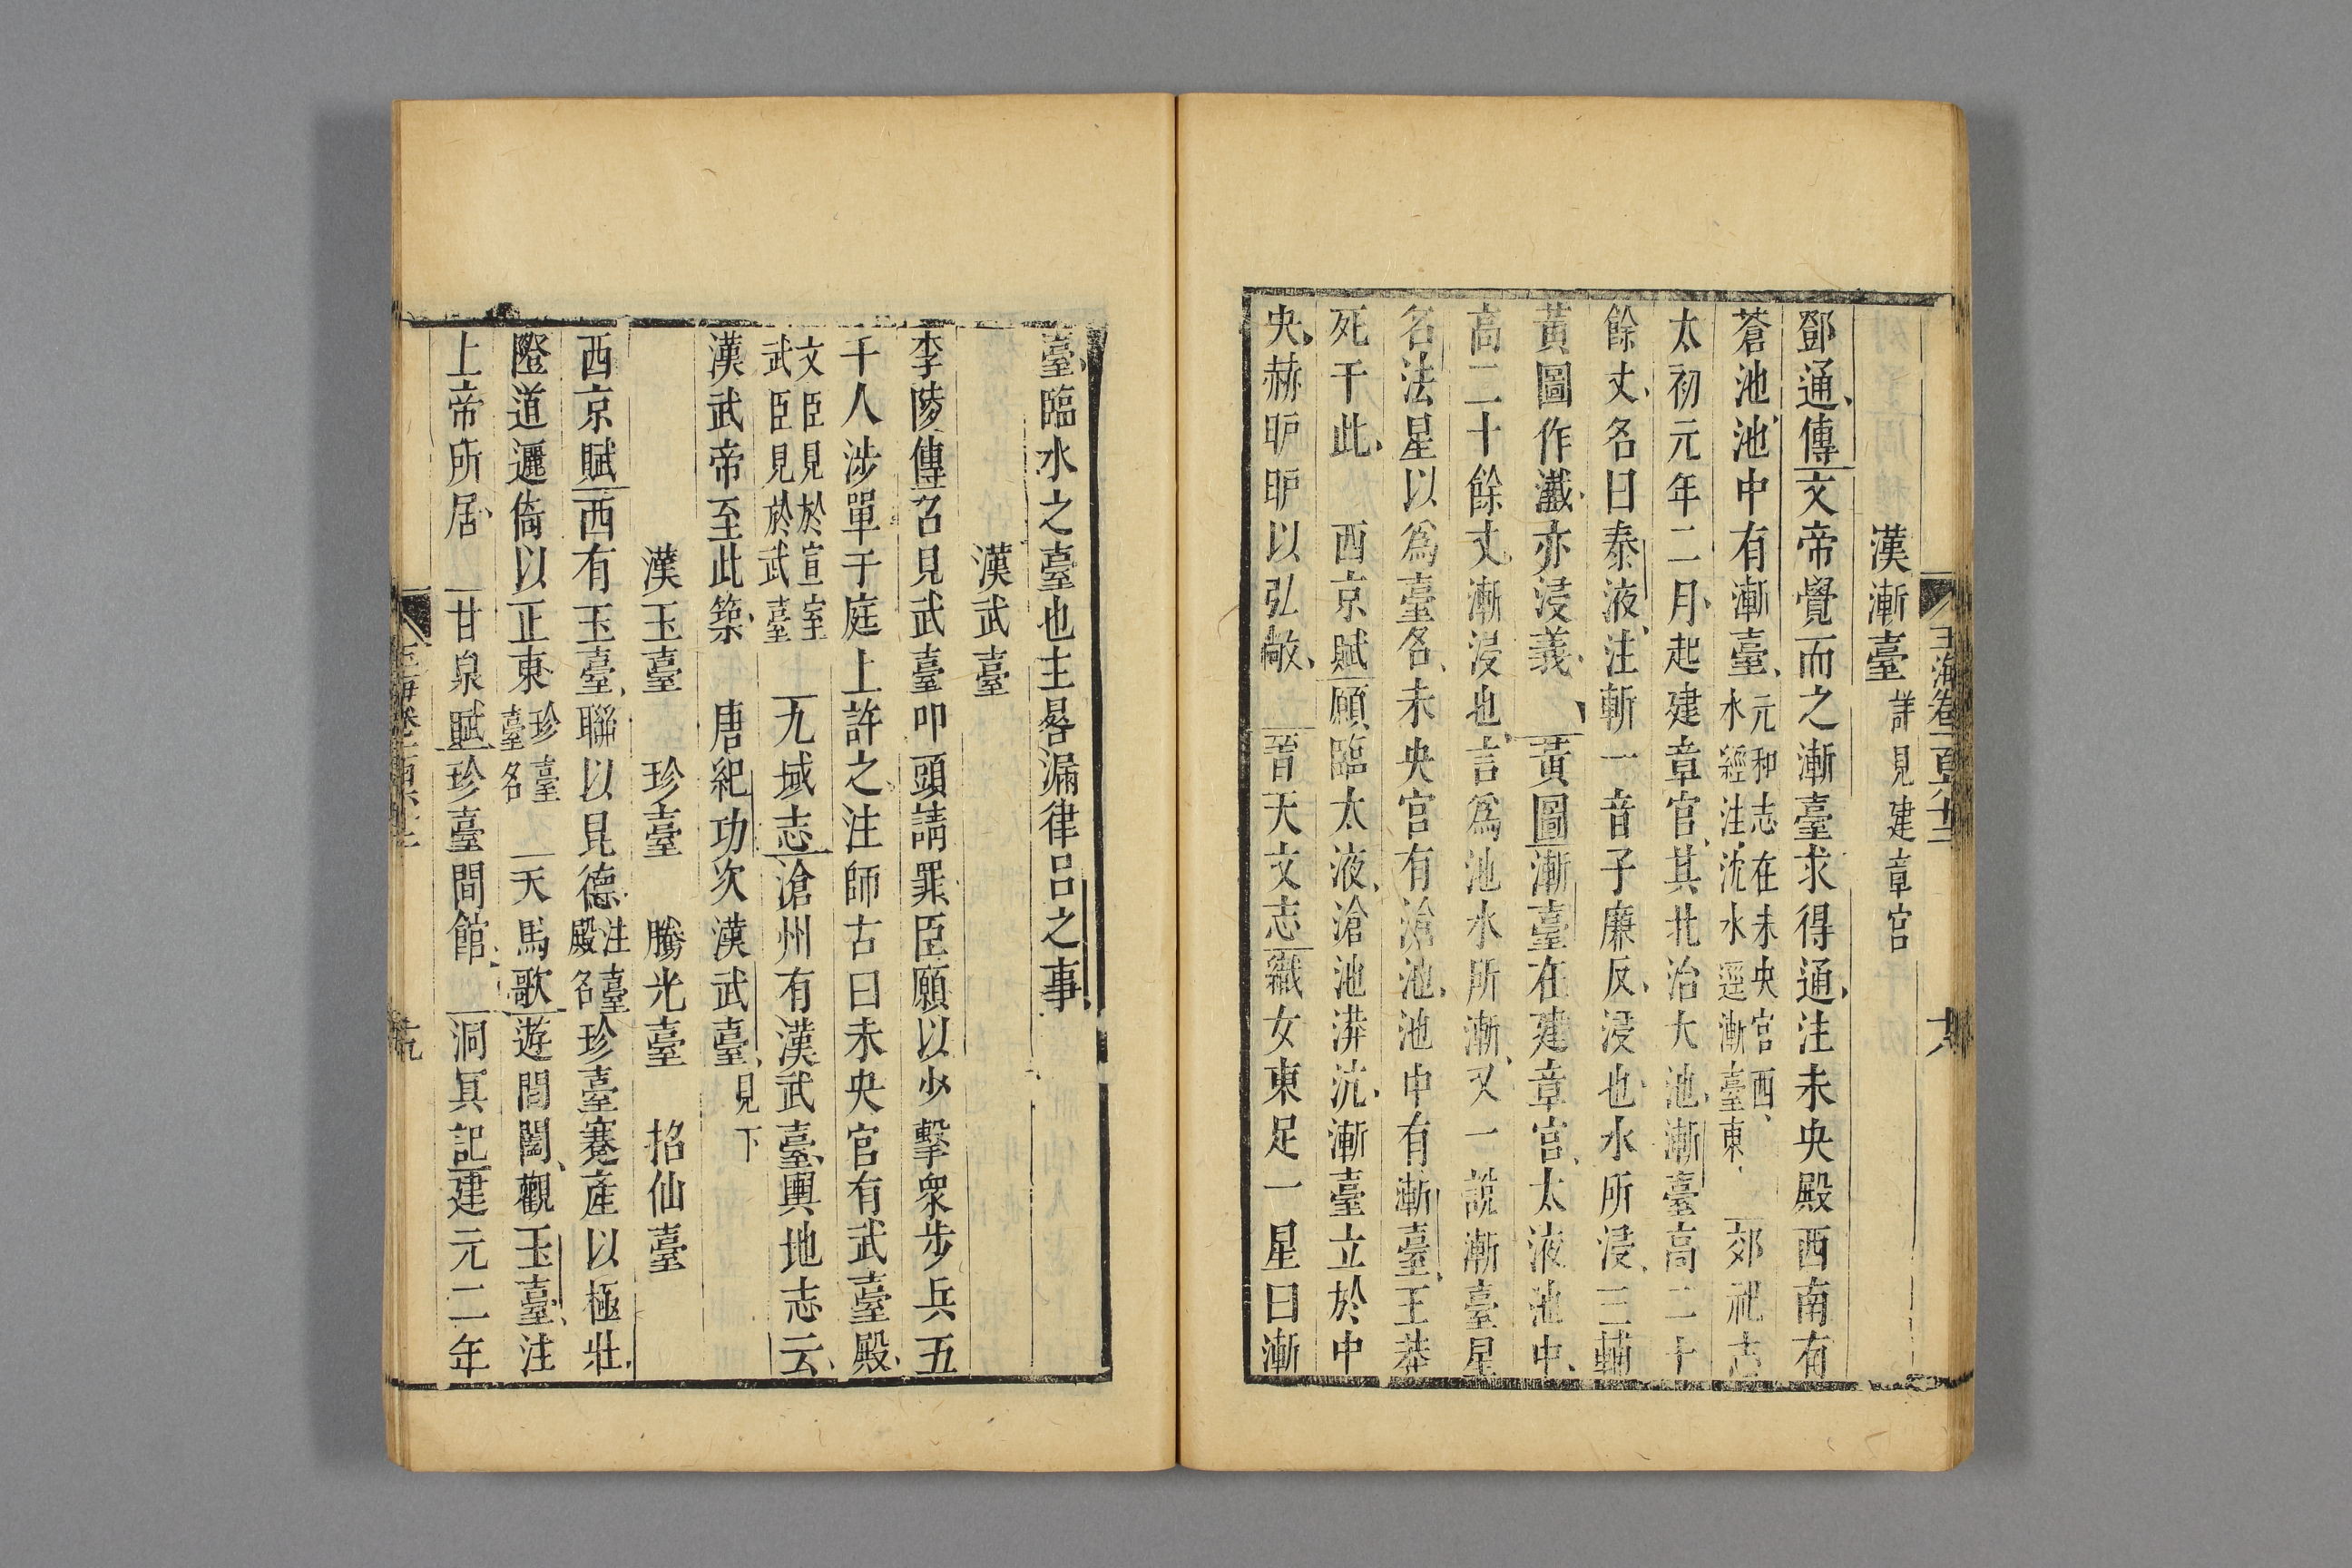 漢漸臺詳見建章宮
鄧通傳文帝覺而之漸臺求得通注未央殿西南有
蒼池池中有漸臺元和志在未央宮西水經注沈水逕漸臺東郊祀志
太初元年二月起建章宮其北治大池漸臺高二十
餘丈名曰泰液注漸一音子廉反浸也水所浸三輔
黃圖作瀸亦浸義黃圖漸臺在建章宮太液池中
高二十餘丈漸浸也言爲池水所漸又一說漸臺星
名法星以爲臺名未央宮有滄池池中有漸臺王莽
死于此西京賦顧臨太液滄池漭沆漸臺立於中
央赫昈昈以弘敞晉天文志織女東足一星曰漸
臺臨水之臺也主晷漏律呂之事
漢武臺
李陵傳召見武臺叩頭請罪臣願以少擊衆步兵五
千人涉單于庭上許之注師古曰未央宮有武臺殿
文臣見於宣室武臣見於武臺九域志滄州有漢武臺輿地志云
漢武帝至此築唐紀功次漢武臺見下
漢玉臺珍臺勝光臺招仙臺
西京賦西有玉臺聯以昆德注臺殿名珍臺蹇產以極壯
隥道邐倚以正東珍臺臺名天馬歌遊閶闔觀玉臺注
上帝所居甘泉賦珍臺閒館洞冥記建元二年